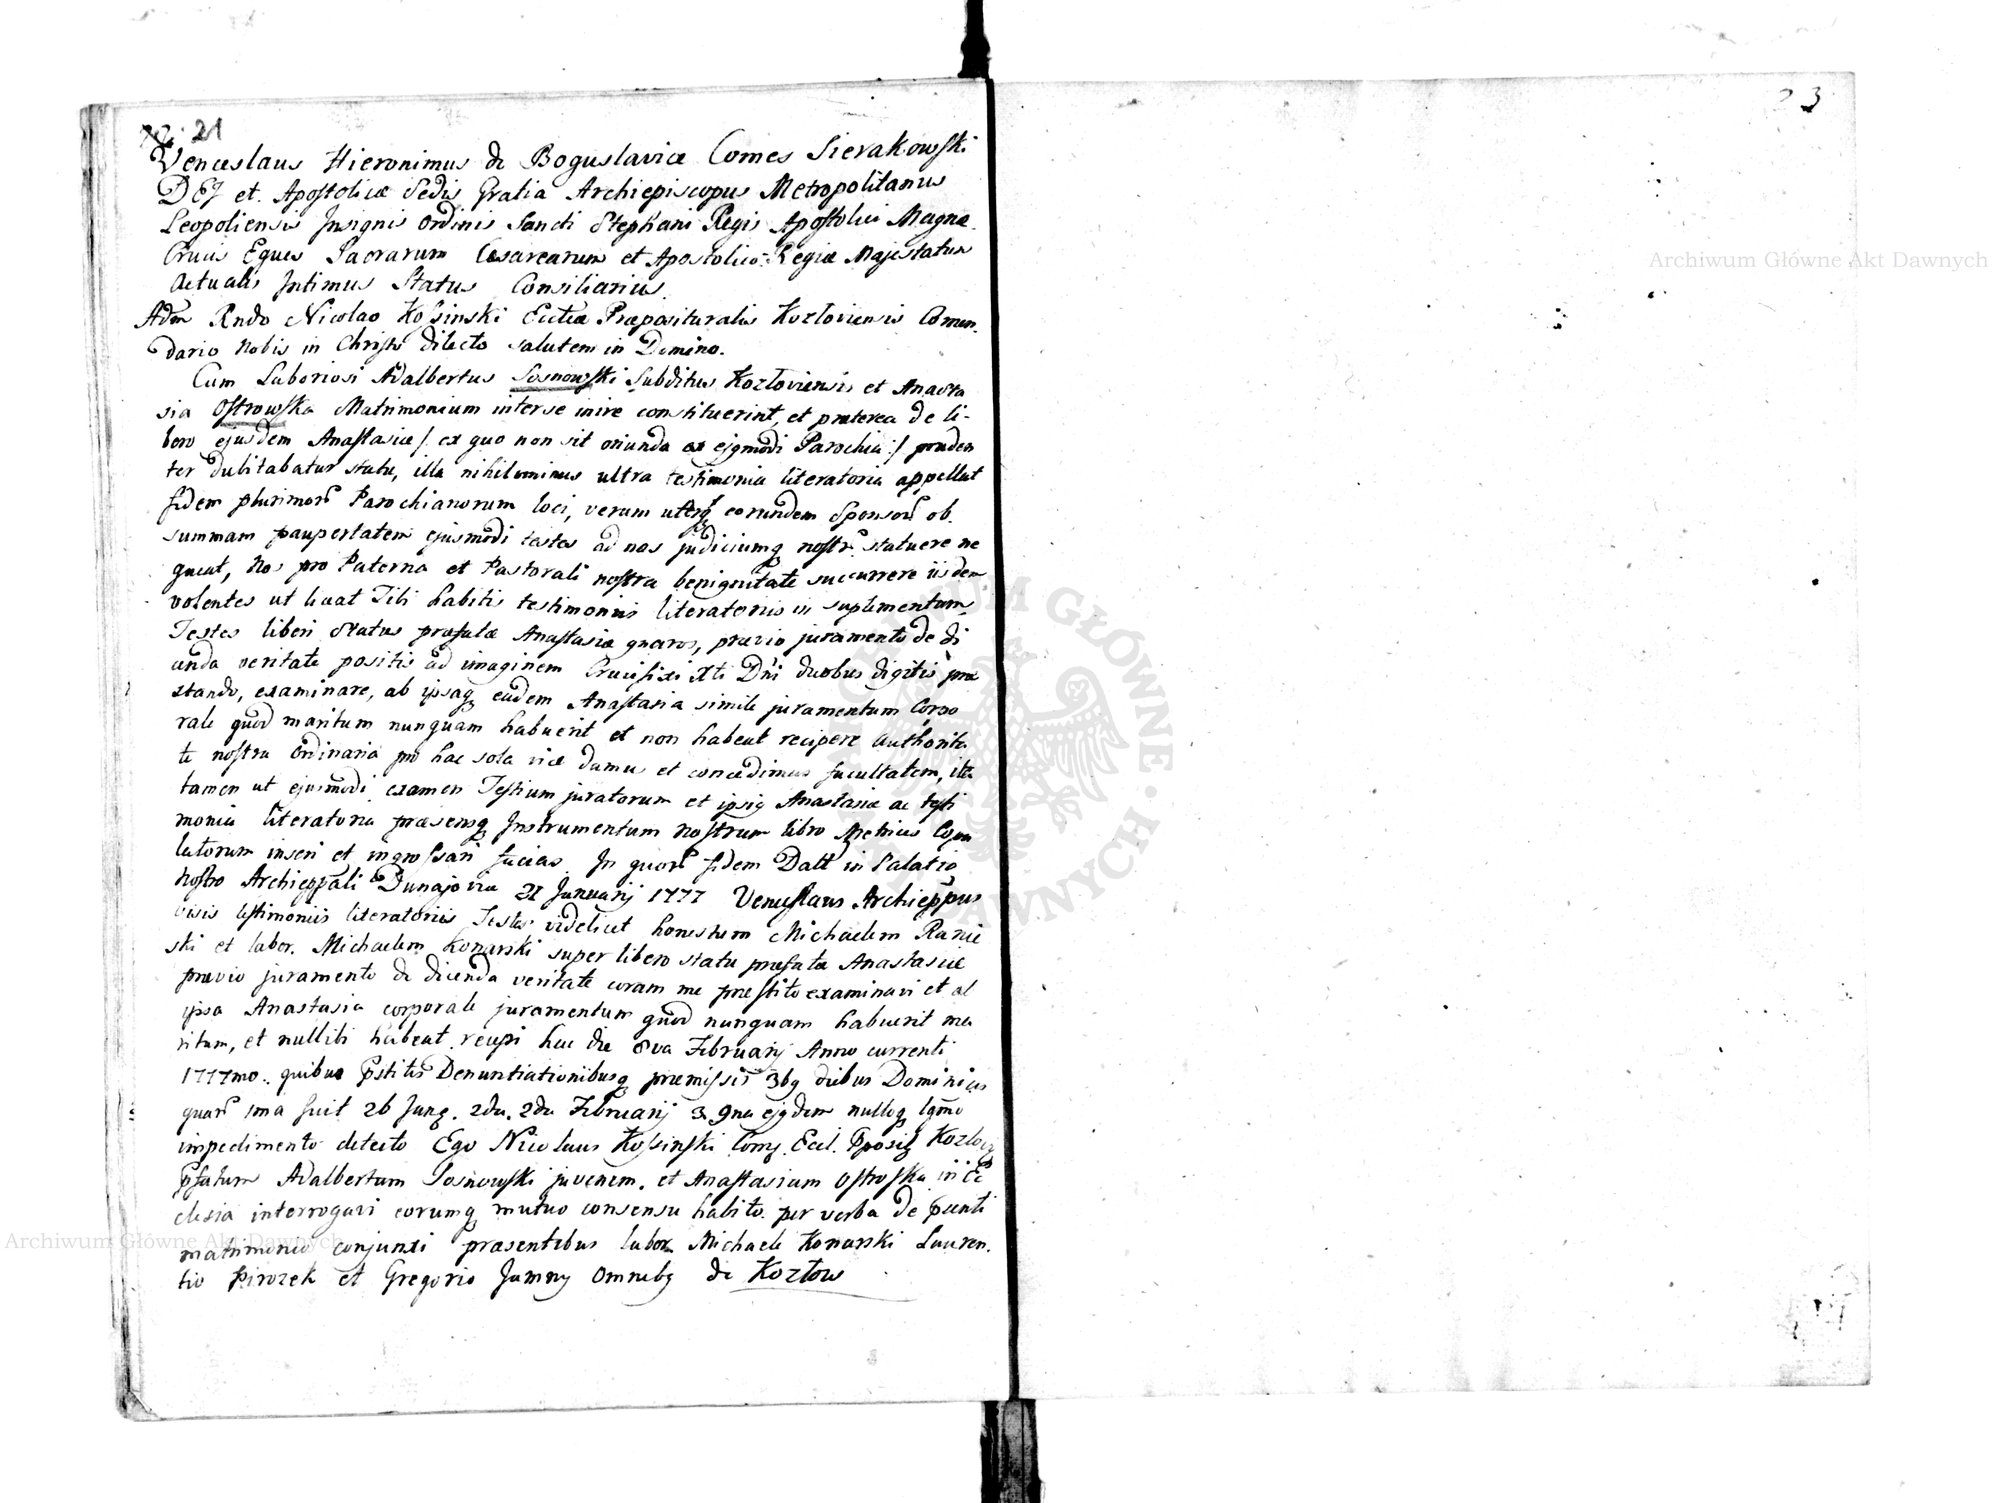 21
23
Venceslaus Hieronimus de Boguslavice Comes Sierakowski
DEJ et Apostolicæ Sedis Gratia Archiepiscopus Metropolitanus
Leopoliensis Insignis Ordinis Sancti Stephani Regis Apostolici Magnæ
Crucis Eques Sacrarum Cæsarearum et Apostolico-Regiæ Majestatum
Actualis Intimus Status Consiliarius.
Adm Rndo Nicolao Kossinski Ecclæ Præposituralis Kozloviensis Comen-
dario Nobis in Christo dilecto salutem in Domino.
Cum Laboriosi Adalbertus Sosnowski Subditus Kozłoviensis et Anasta
sia Ostrowska Matrimonium inter se inire constituerint, et præterea de li-
bero ejusdem Anastasiæ /: ex quo non sit oriunda ex ejgmodi Parochia :/ pruden
ter dubitabatur statu, illa nihilominus ultra testimonia literatoria appellat
fidem plurimor Parochianorum loci, verum uterq eorundem Sponsor ob
summam paupertatem ejusmodi testes ad nos judiciumq nostr. statuere ne
queat, Nos pro Paterna et Pastorali nostra benignitate succurrere iisdem
volentes ut liceat Tibi habitis testimoniis literatoriis in suplementum
Testes liberi Status præfatæ Anastasiæ gnaros, prævio juramento de di
cenda veritate positis ad imaginem Crucifixi Xti Dni duobus digitis præ
stando, examinare, ab ipsaq eadem Anastasia simile juramentum Corpo
rale quod maritum nunquam habuerit et non habeat recipere authorita
te nostra Ordinaria pro hac sola vice damus et concedimus facultatem, ita
tamen ut ejusmodi examen Testium juratorum et ipsig Anastasiæ ac testi
monia literatoria præsensq Instrumentum nostrum libro Metrices Copu
latorum inseri et ingrossari facias. In quor fidem Datt in Palatio
Nostro Archieppali Dunajovia 21 Januarij 1777 Venceslaus Archieppus
visis testimoniis literatoriis Testes videlicet honestum Michaelem Ranic
ski et labor. Michaelem Konarski super libero statu præfatæ Anastasiæ
prævio juramento de dicenda veritate coram me præstito examinavi et ab
ipsa Anastasia corporale juramentum quod nunquam habuerit ma
ritum, et nullibi habeat recepi hac die 8va Februarij Anno currenti
1777mo. quibus pstitis Denuntiationibusq præmissis 3bg diebus Dominicis
quar 1ma fuit 26 Jang. 2da. 2da Februarij 3. 9na ejgdem nulloq lgmo
impedimento detecto Ego Nicolaus Kossinski Comg. Eccl. Pposig Kozlovg
pfatum Adalbertum Sosnowski juvenem. et Anastasiam Ostroska in Ec
clesia interrogavi eorumq mutuo consensu habito. per verba de psenti
matrimonio conjunxi præsentibus labor. Michaele Konarski Lauren.
tio Pirozek et Gregorio Jamny Omnibg de Kozłow
Archiwum Główne Akt Dawnych
Archiwum Główne Akt Dawnych
ARCHIWUM GŁÓWNE AKT DAWNYCH